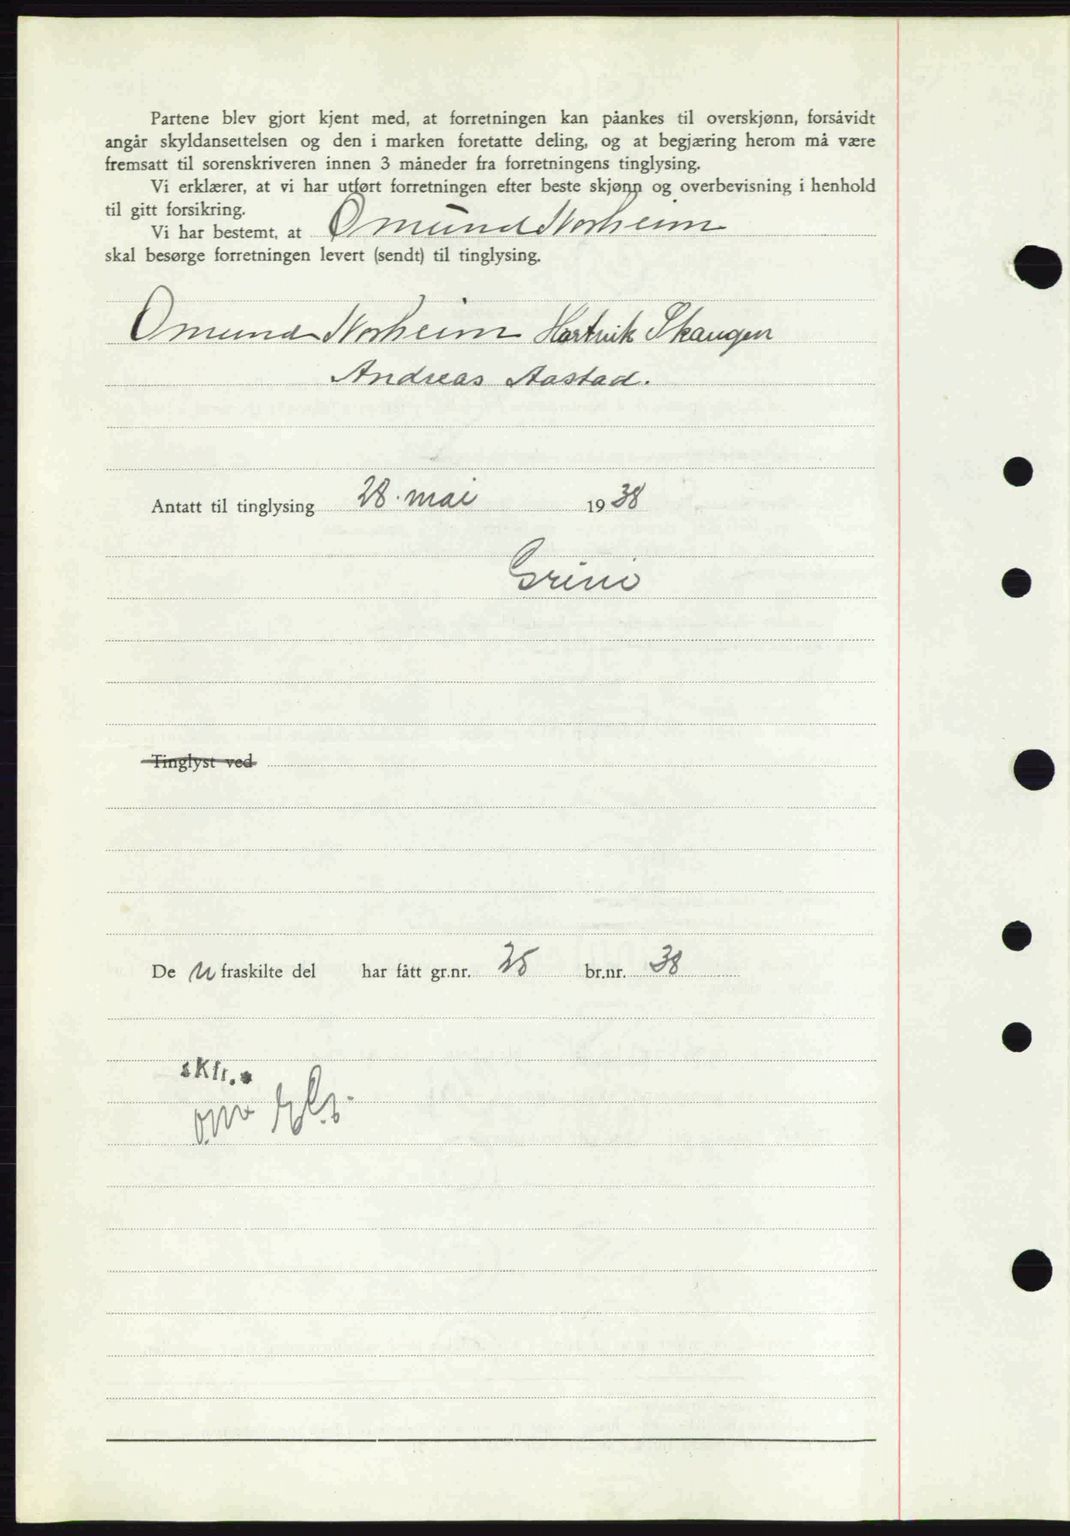 Partene blev gjort kjent med, at forretningen kan påankes til overskjønn, forsåvidt
angår skyldansettelsen og den i marken foretatte deling, og at begjæring herom må være
fremsatt til sorenskriveren innen 3 måneder fra forretningens tinglysing.
Vi erklærer, at vi har utført forretningen efter beste skjønn og overbevisning i henhold
til gitt forsikring.
Vi har bestemt, at Omund Norheim
skal besørge forretningen levert (sendt) til tinglysing.
Omund Norheim Hartvik Skaugen
Andreas Aastad.
Antatt til tinglysing 28. mai 1938
Grini
Tinglyst ved
De n fraskilte del har fått gr.nr. 25 br.nr. 38
skfr.